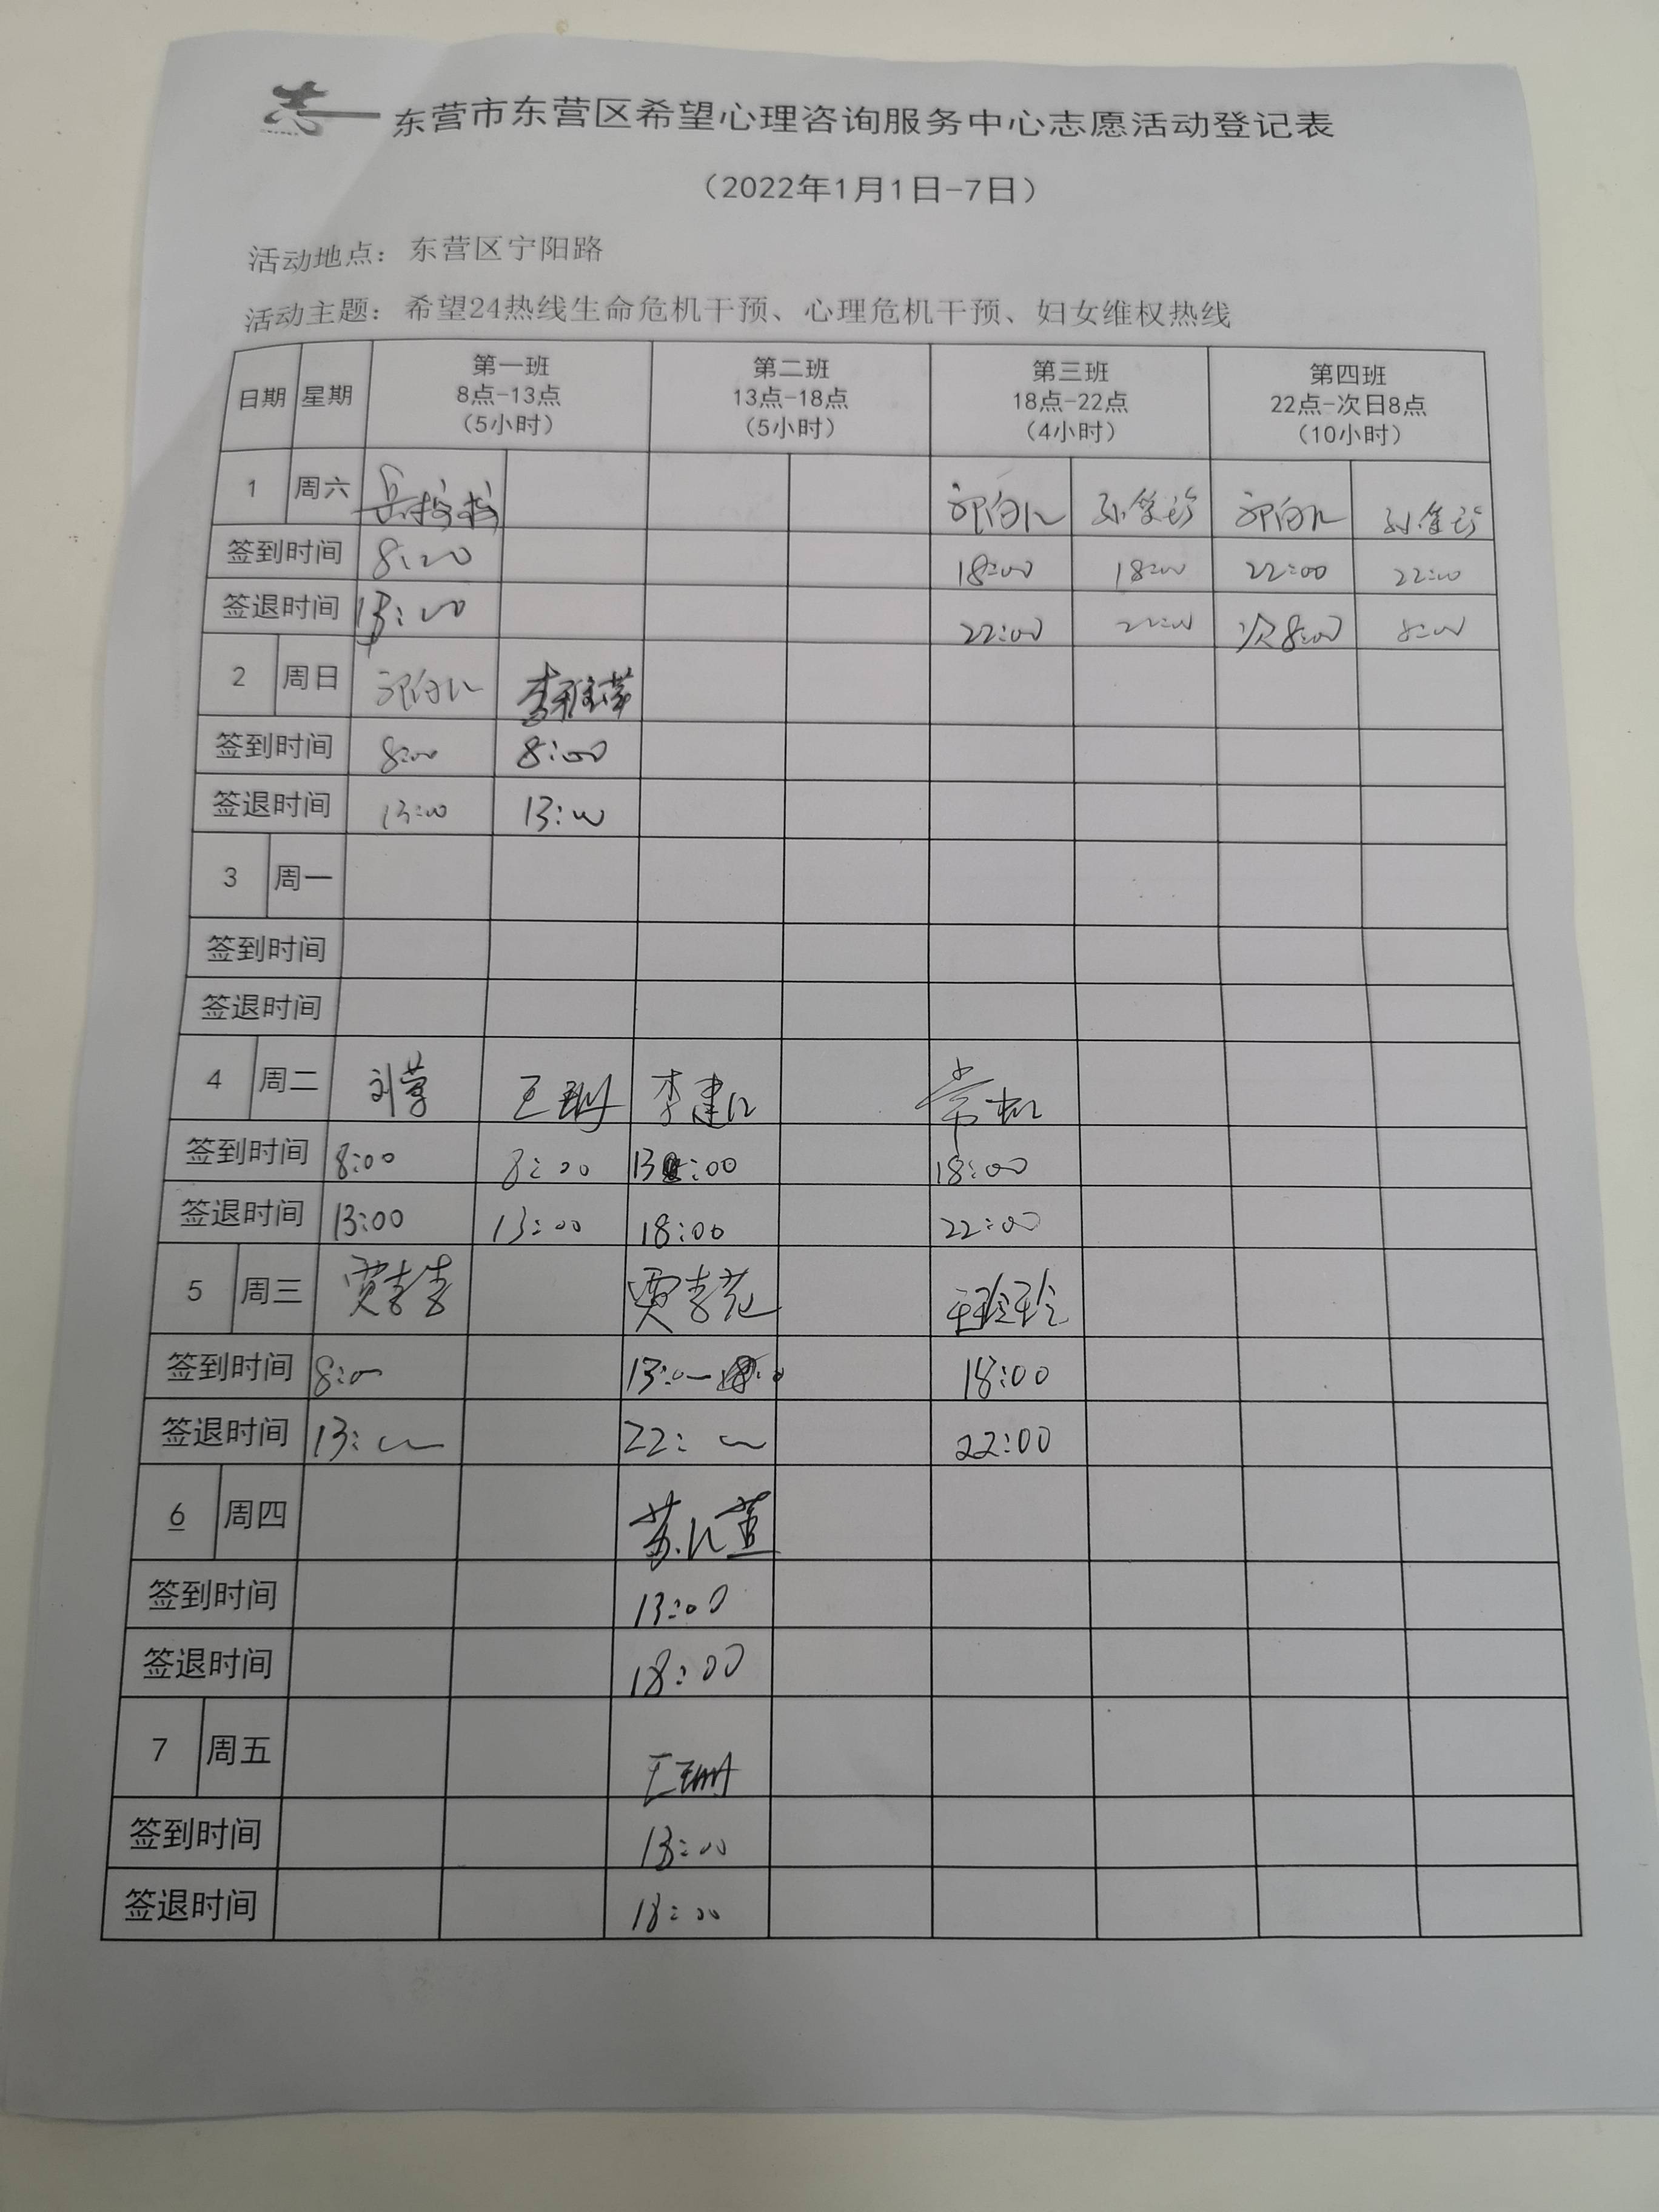 志
东营市东营区希望心理咨询服务中心志愿活动登记表
（2022年1月1日-7日）
活动地点：东营区宁阳路
活动主题：希望24热线生命危机干预、心理危机干预、妇女维权热线
日期 星期 第一班 8点-13点 （5小时） 第二班 13点-18点 （5小时） 第三班 18点-22点 （4小时） 第四班 22点-次日8点 （10小时）
1 周六
签到时间 8:00 18:00 18:00 22:00 22:00
签退时间 13:00 22:00 22:00 次8:00 8:00
2 周日
签到时间 8:00 8:00
签退时间 13:00 13:00
3 周一
签到时间
签退时间
4 周二 王珊 李建红
签到时间 8:00 8:00 13:00 18:00
签退时间 13:00 13:00 18:00 22:00
5 周三 王玲玲
签到时间 8:00 13:00 18:00
签退时间 13:00 22:00 22:00
6 周四
签到时间 13:00
签退时间 18:00
7 周五 王珊
签到时间 13:00
签退时间 18:00